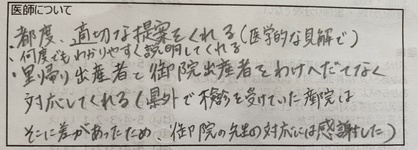 医師について
・都度、適切な提案をくれる(医学的な見解で)
・何度でもわかりやすく説明してくれる
・里帰り出産者と御院出産者をわけへだてなく
対応してくれる(県外で検診を受けていた産院は
そこに差があったため、御院の先生の対応には感謝した)